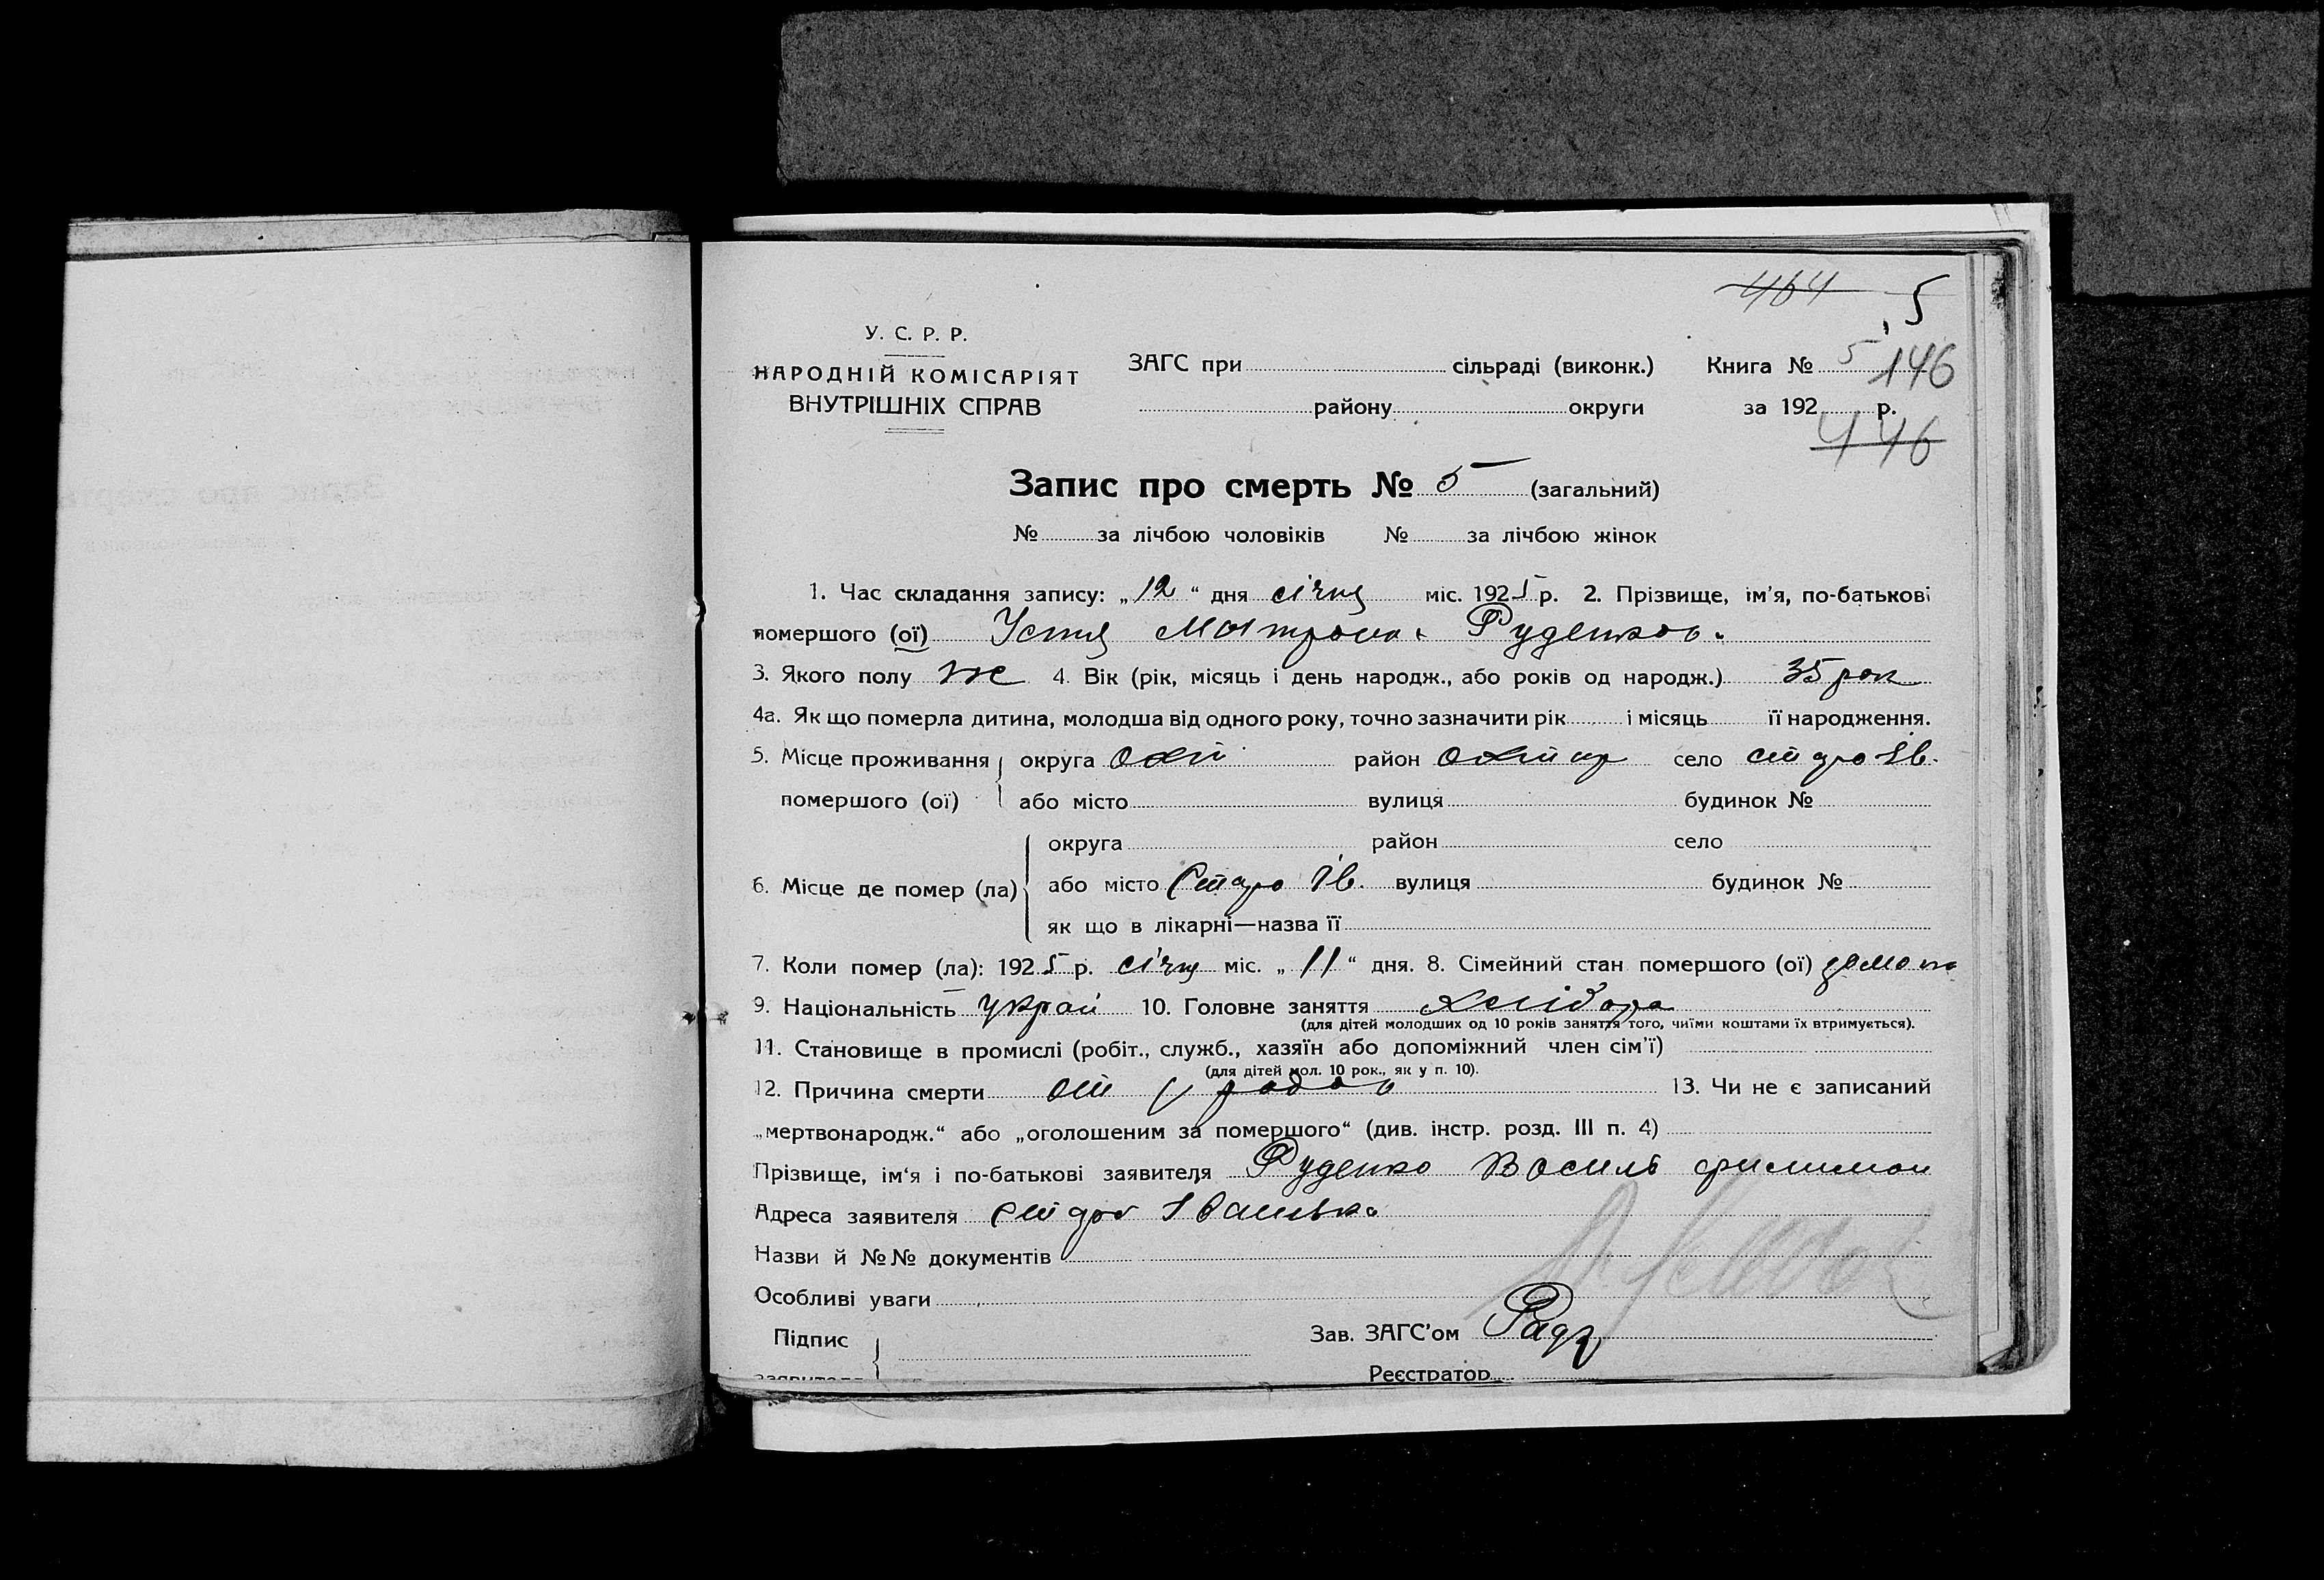 464 5
У. С. Р. Р.
НАРОДНІЙ КОМІСАРІЯТ
ВНУТРІШНІХ СПРАВ
ЗАГС при сільраді (виконк.) Книга № 5 146
району округи за 192 р.
446
Запис про смерть № 5 (загальний)
№ за лічбою чоловіків № за лічбою жінок
1. Час складання запису: „12“ дня січня міс. 1925 р. 2. Прізвище, ім'я, по-батькові
помершого (ої) Устя Матрона Руденков.
3. Якого полу же 4. Вік (рік, місяць і день народж., або років од народж.) 35 рок
4а. Як що померла дитина, молодша від одного року, точно зазначити рік і місяць її народження.
5. Місце проживання округа Охт район Охтир село старо Ів.
помершого (ої) або місто вулиця будинок №
округа район село
6. Місце де помер (ла) або місто Старо Ів. вулиця будинок №
як що в лікарні—назва її
7. Коли помер (ла): 1925 р. січня міс. „11“ дня. 8. Сімейний стан помершого (ої)
9. Національність украй 10. Головне заняття хлібора
(для дітей молодших од 10 років заняття того, чиїми коштами їх втримується).
11. Становище в промислі (робіт., служб., хазяїн або допоміжний член сім'ї)
(для дітей мол. 10 рок., як у п. 10).
12. Причина смерти от родов 13. Чи не є записаний
„мертвонародж.“ або „оголошеним за помершого“ (див. інстр. розд. III п. 4)
Прізвище, ім'я і по-батькові заявителя Руденко Василь филимон
Адреса заявителя старо Іванівка
Назви й №№ документів
Особливі уваги
Підпис Зав. ЗАГС'ом
заявителя Реєстратор